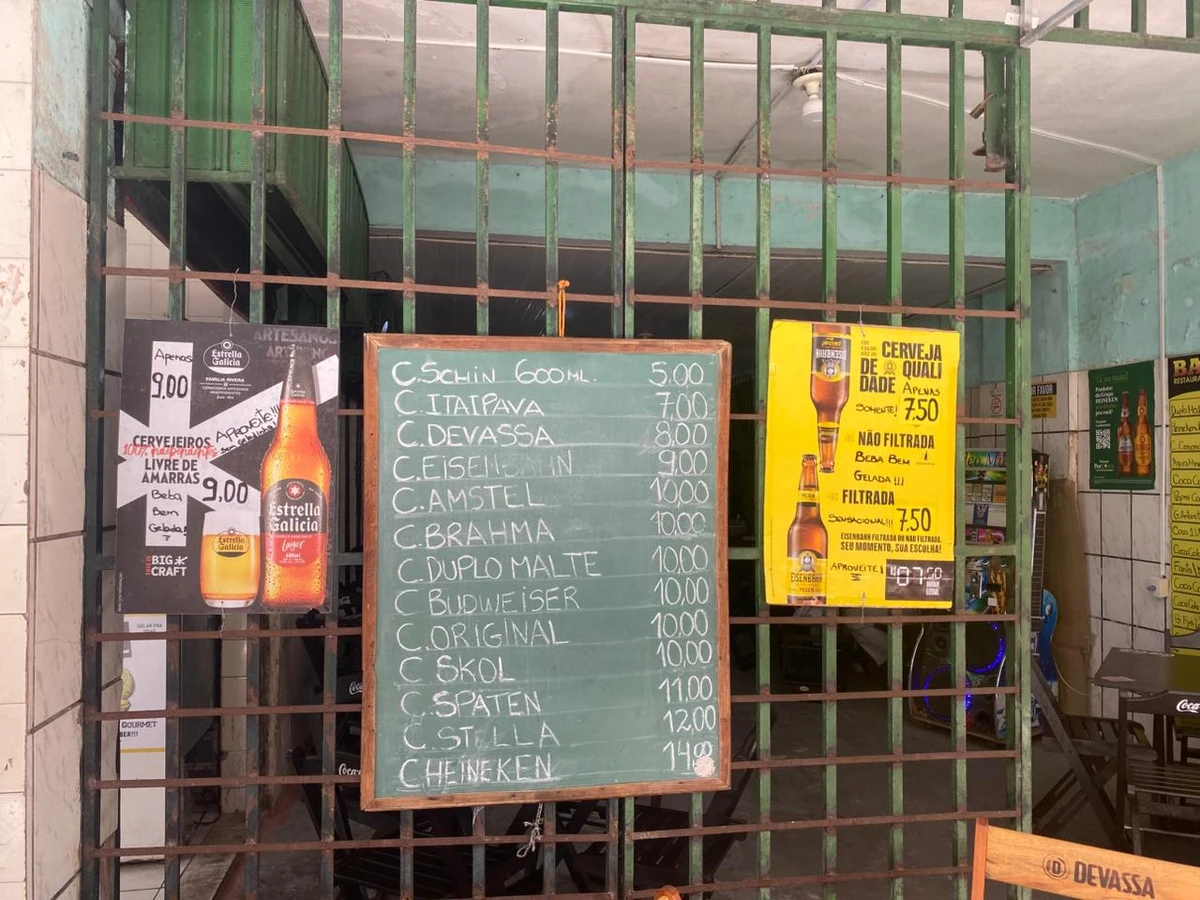 ARTESANOS
Apenas
9,00
Estrella
Galicia
FAMILIA RIVERA
APROVEITE!!!
CERVEJEIROS
100% independentes
LIVRE DE
AMARRAS
9,00
Beba
Bem
Gelada!
Estrella
Galicia
Lager
Estrella
Galicia
BIG
CRAFT
GOURMET
C.SCHIN 600ML. 5.00
C.ITAIPAVA 7,00
C.DEVASSA 8,00
C.EISENBAHN 9,00
C.AMSTEL 10,00
C.BRAHMA 10,00
C.DUPLO MALTE 10,00
C.BUDWEISER 10,00
C.ORIGINAL 10,00
C SKOL 10,00
C.SPATEN 11,00
C.STELLA 12,00
C.HEINEKEN 14,00
EISENBAHN
CERVEJA
DE QUALI
DADE
APENAS
SOMENTE! 7,50
NÃO FILTRADA
BEBA BEM
GELADA !!!
FILTRADA
SENSACIONAL!!! 7,50
EISENBAHN FILTRADA OU NÃO FILTRADA,
SEU MOMENTO, SUA ESCOLHA!
APROVEITE!
EISENBAHN
FAVOR
Produtos
do Grupo
HEINEKEN
BA
RESTAURA
Coca
Coca
Coca
DEVASSA